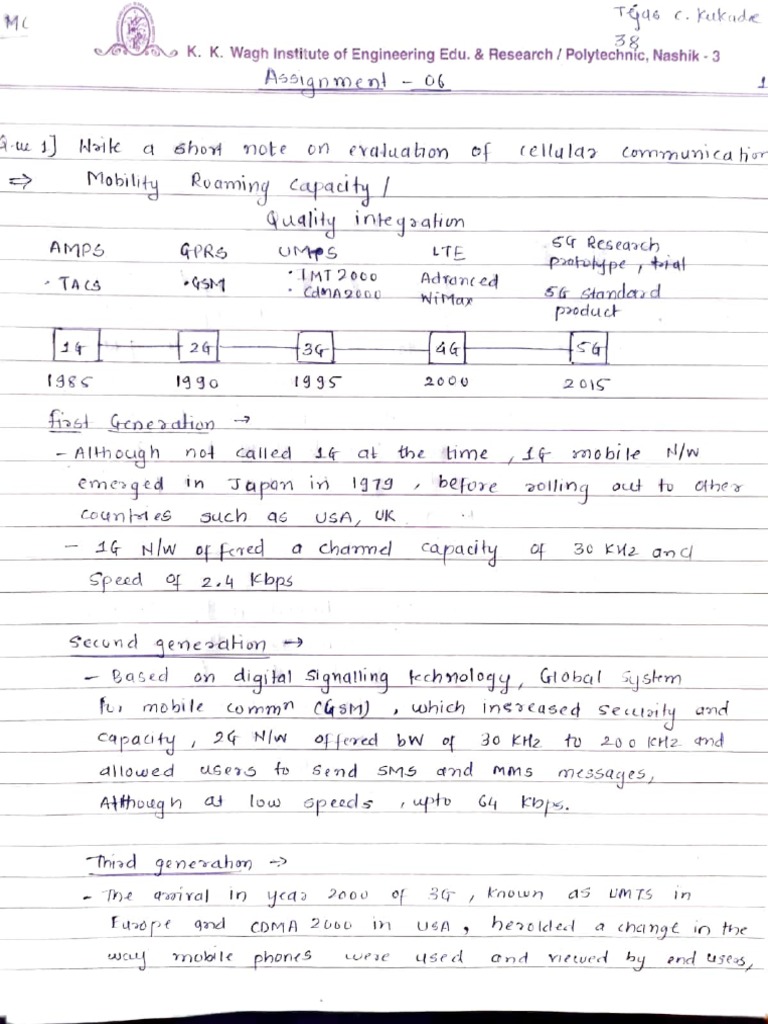 MC
Tejas C. Kukade
38
K. K. Wagh Institute of Engineering Edu. & Research / Polytechnic, Nashik - 3
Assignment - 06
1
Q.ue 1] Write a short note on evaluation of cellular communication
⇒ Mobility Roaming capacity /
Quality integration
AMPS GPRS UMPS LTE 5G Research
prototype, trial
• TACS • GSM • IMT 2000 Advanced
• CdMA 2000 WiMax 5G standard
product
1G 2G 3G 4G 5G
1985 1990 1995 2000 2015
first Generation →
- Although not called 1G at the time, 1G mobile N/W
emerged in Japan in 1979, before rolling out to other
countries such as USA, UK
- 1G N/W offered a channel capacity of 30 KHz and
Speed of 2.4 Kbps
Second generation →
- Based on digital signalling technology, Global System
for mobile commn (GSM), which increased security and
capacity, 2G N/W offered bW of 30 KHz to 200 KHz and
allowed users to send SMS and MMS messages,
Although at low speeds, upto 64 Kbps.
Third generation →
- The arrival in year 2000 of 3G, known as UMTS in
Europe and CDMA 2000 in USA, herolded a change in the
way mobile phones were used and viewed by end users,